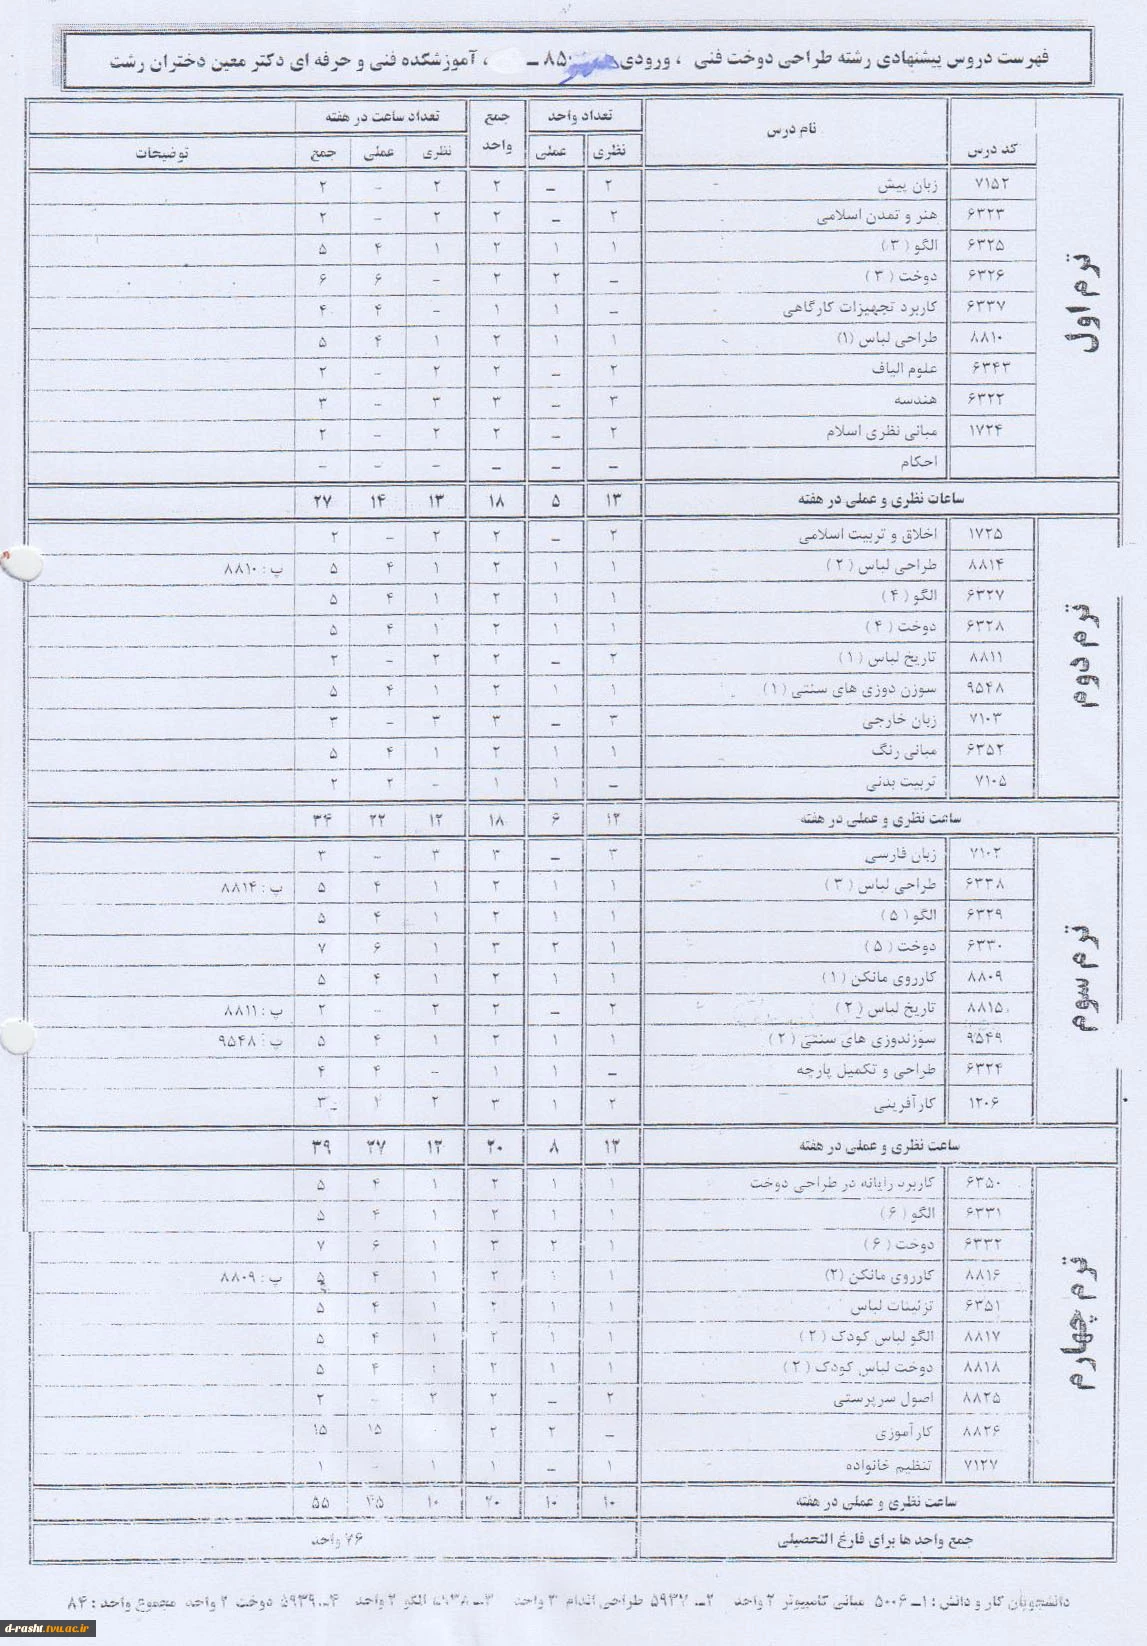 فهرست دروس پیشنهادی رشته طراحی دوخت فنی ، ورودی ۸۵ ـ ، آموزشکده فنی و حرفه ای دکتر معین دختران رشت
کد درس نام درس تعداد واحد جمع واحد تعداد ساعت در هفته
نظری عملی نظری عملی جمع توضیحات
ترم اول
۷۱۵۲ زبان پیش ۲ – ۲ ۲ – ۲
۶۳۲۳ هنر و تمدن اسلامی ۲ – ۲ ۲ – ۲
۶۳۲۵ الگو ( ۳ ) ۱ ۱ ۲ ۱ ۴ ۵
۶۳۲۶ دوخت ( ۳ ) – ۲ ۲ – ۶ ۶
۶۳۳۷ کاربرد تجهیزات کارگاهی – ۱ ۱ – ۴ ۴
۸۸۱۰ طراحی لباس (۱) ۱ ۱ ۲ ۱ ۴ ۵
۶۳۴۳ علوم الیاف ۲ – ۲ ۲ – ۲
۶۳۲۲ هندسه ۳ – ۳ ۳ – ۳
۱۷۲۴ مبانی نظری اسلام ۲ – ۲ ۲ – ۲
احکام – – – – – –
ساعات نظری و عملی در هفته ۱۳ ۵ ۱۸ ۱۳ ۱۴ ۲۷
ترم دوم
۱۷۲۵ اخلاق و تربیت اسلامی ۲ – ۲ ۲ – ۲
۸۸۱۴ طراحی لباس ( ۲ ) ۱ ۱ ۲ ۱ ۴ ۵ پ : ۸۸۱۰
۶۳۲۷ الگو ( ۴ ) ۱ ۱ ۲ ۱ ۴ ۵
۶۳۲۸ دوخت ( ۴ ) ۱ ۱ ۲ ۱ ۴ ۵
۸۸۱۱ تاریخ لباس ( ۱ ) ۲ – ۲ ۲ – ۲
۹۵۴۸ سوزن دوزی های سنتی ( ۱ ) ۱ ۱ ۲ ۱ ۴ ۵
۷۱۰۳ زبان خارجی ۳ – ۳ ۳ – ۳
۶۳۵۲ مبانی رنگ ۱ ۱ ۲ ۱ ۴ ۵
۷۱۰۵ تربیت بدنی – ۱ ۱ – ۲ ۲
ساعت نظری و عملی در هفته ۱۲ ۶ ۱۸ ۱۲ ۲۲ ۳۴
ترم سوم
۷۱۰۲ زبان فارسی ۳ – ۳ ۳ – ۳
۶۳۳۸ طراحی لباس ( ۳ ) ۱ ۱ ۲ ۱ ۴ ۵ پ : ۸۸۱۴
۶۳۲۹ الگو ( ۵ ) ۱ ۱ ۲ ۱ ۴ ۵
۶۳۳۰ دوخت ( ۵ ) ۱ ۲ ۳ ۱ ۶ ۷
۸۸۰۹ کارروی مانکن ( ۱ ) ۱ ۱ ۲ ۱ ۴ ۵
۸۸۱۵ تاریخ لباس ( ۲ ) ۲ – ۲ ۲ – ۲ پ : ۸۸۱۱
۹۵۴۹ سوزندوزی های سنتی ( ۲ ) ۱ ۱ ۲ ۱ ۴ ۵ پ : ۹۵۴۸
۶۳۲۴ طراحی و تکمیل پارچه – ۱ ۱ – ۴ ۴
۱۲۰۶ کارآفرینی ۲ ۱ ۳ ۲ ۳
ساعت نظری و عملی در هفته ۱۲ ۸ ۲۰ ۱۲ ۲۷ ۳۹
ترم چهارم
۶۳۵۰ کاربرد رایانه در طراحی دوخت ۱ ۱ ۲ ۱ ۴ ۵
۶۳۳۱ الگو ( ۶ ) ۱ ۱ ۲ ۱ ۴ ۵
۶۳۳۲ دوخت ( ۶ ) ۱ ۲ ۳ ۱ ۶ ۷
۸۸۱۶ کارروی مانکن (۲) ۱ ۱ ۲ ۱ ۴ ۵ پ : ۸۸۰۹
۶۳۵۱ تزئینات لباس ۱ ۱ ۲ ۱ ۴ ۵
۸۸۱۷ الگو لباس کودک ( ۲ ) ۱ ۱ ۲ ۱ ۴ ۵
۸۸۱۸ دوخت لباس کودک ( ۲ ) ۱ ۱ ۲ ۱ ۴ ۵
۸۸۲۵ اصول سرپرستی ۲ – ۲ ۲ – ۲
۸۸۲۶ کارآموزی – ۲ ۲ ۰ ۱۵ ۱۵
۷۱۲۷ تنظیم خانواده ۱ – ۱ ۱ – ۱
ساعت نظری و عملی در هفته ۱۰ ۱۰ ۲۰ ۱۰ ۴۵ ۵۵
جمع واحد ها برای فارغ التحصیلی ۷۶ واحد
دانشجویان کار و دانش : ۱ـ ۵۰۰۶ مبانی کامپیوتر ۲ واحد ۲ـ ۵۹۳۷ طراحی اندام ۲ واحد ۳ـ ۵۹۳۸ الگو ۲ واحد ۴ـ ۵۹۳۹ دوخت ۲ واحد مجموع واحد : ۸۴
d-rasht.tvu.ac.ir